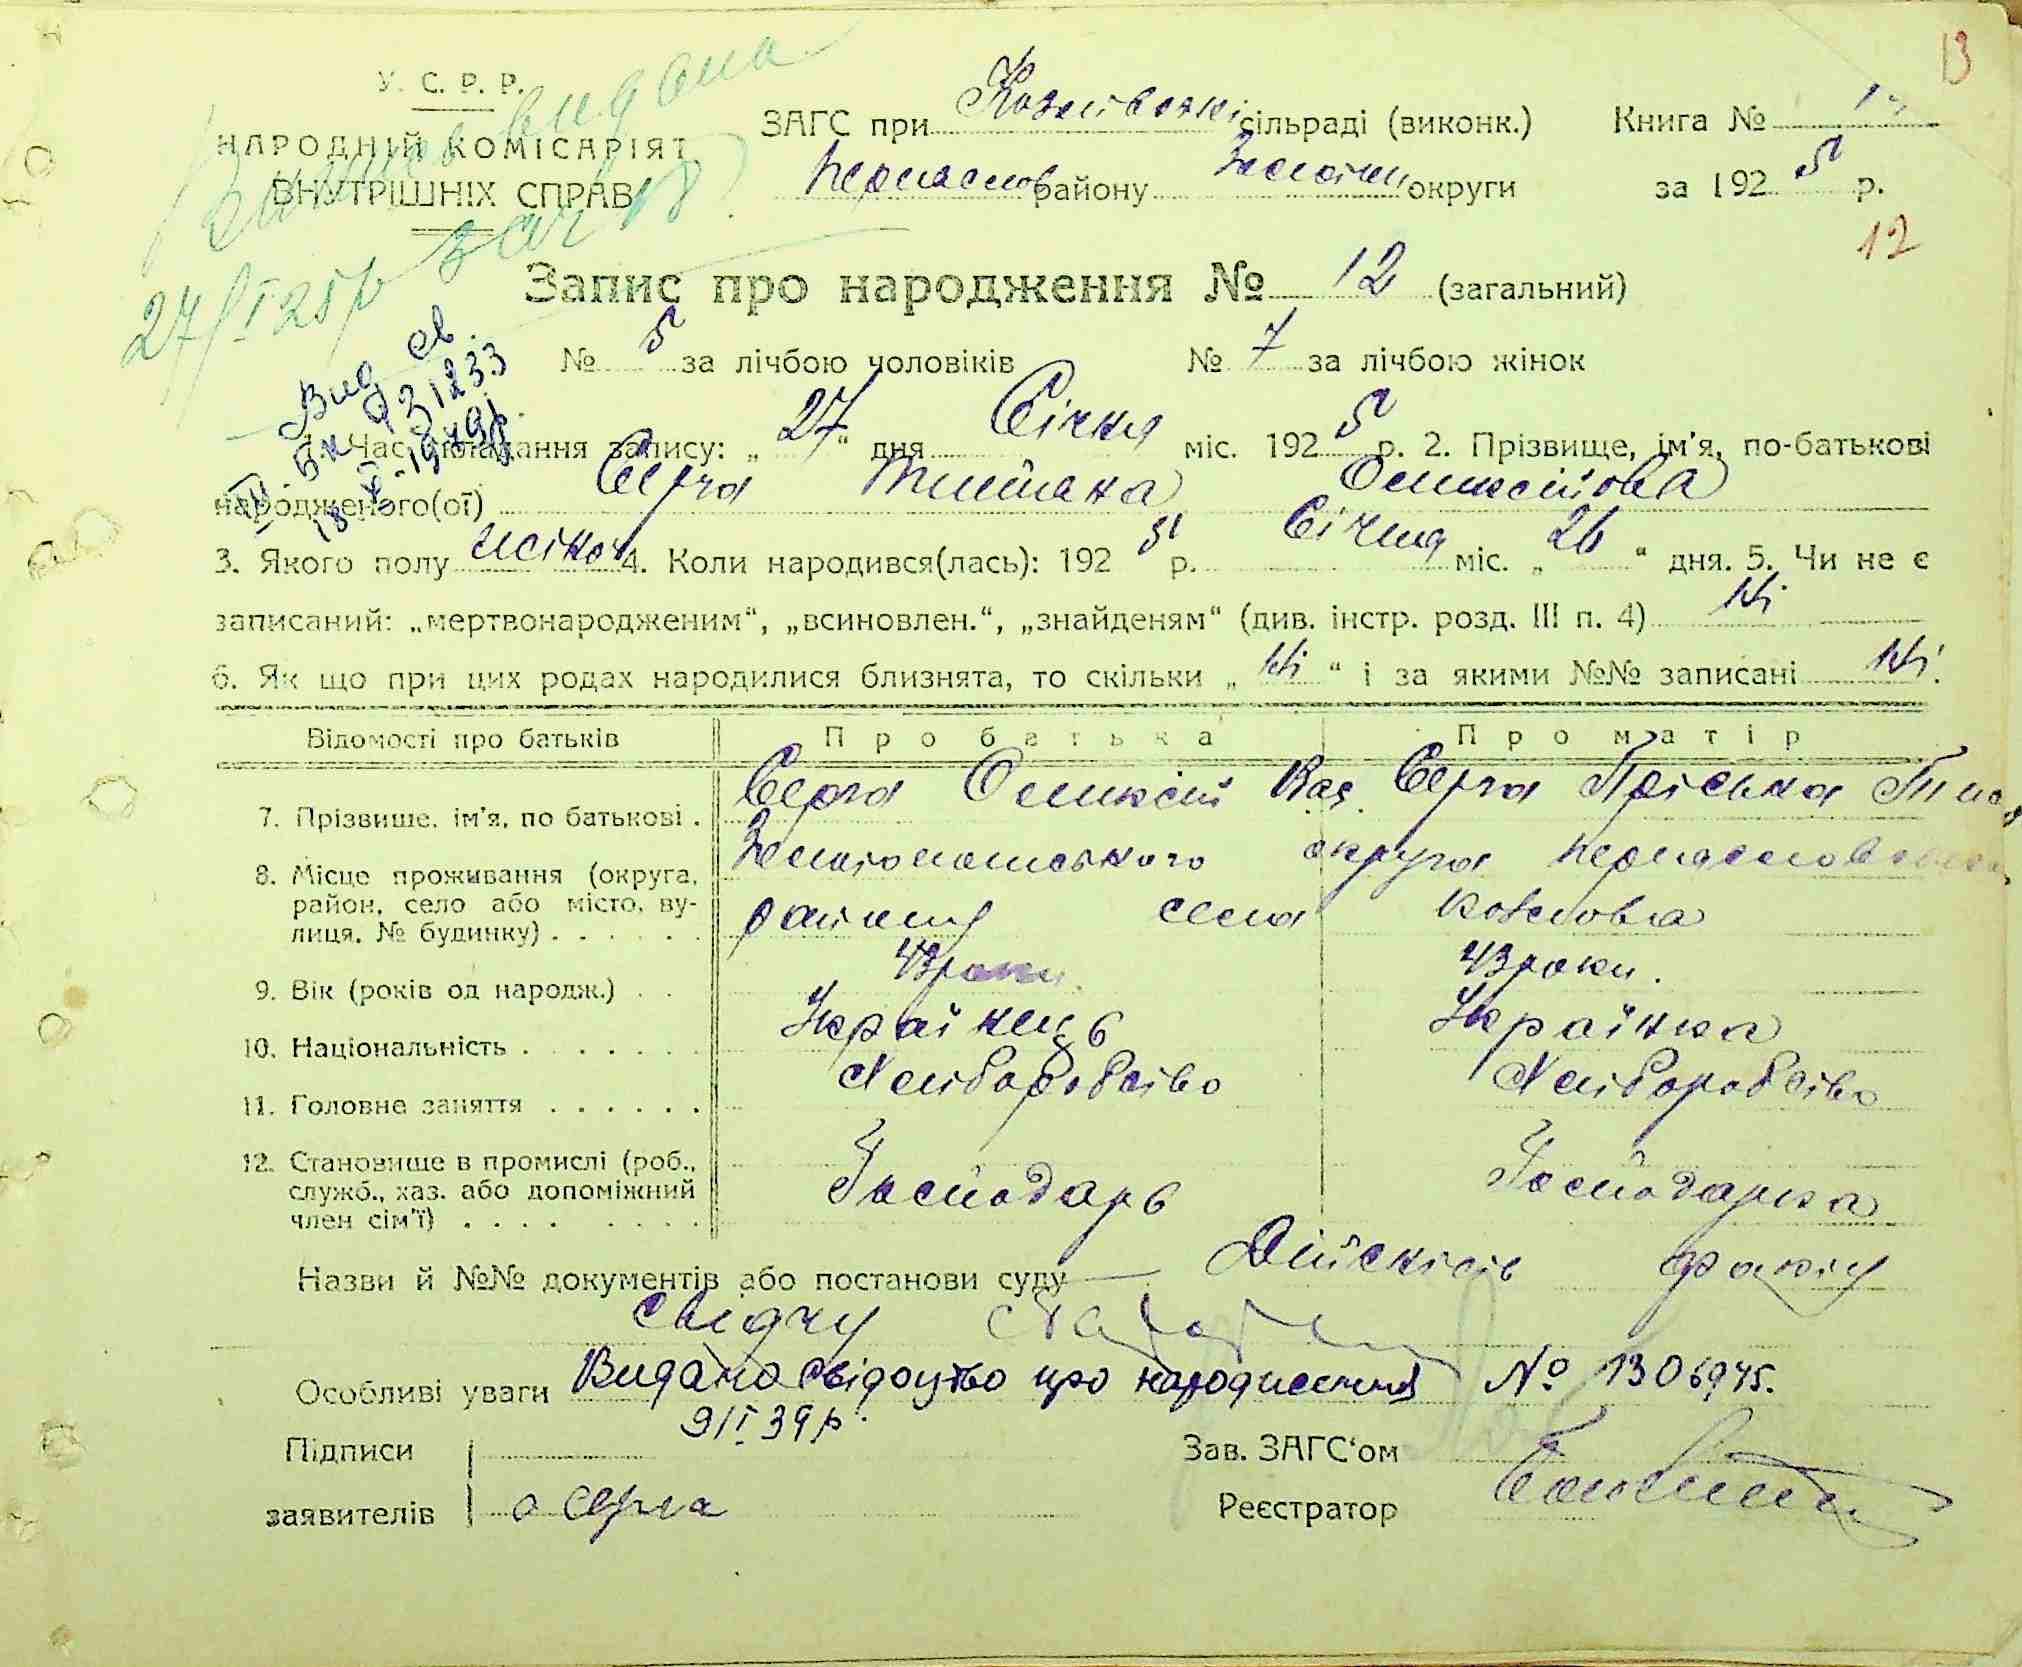 13
У. С. Р. Р.
НАРОДНІЙ КОМІСАРІЯТ
ВНУТРІШНІХ СПРАВ
видана
27/I 25р
ЗАГС при Козлівській сільраді (виконк.) Книга №
Переяслов району Золотон округи за 192 5 р.
12
Запис про народження № 12 (загальний)
№ 5 за лічбою чоловіків № 7 за лічбою жінок
Вид св.
1. Час складання запису: „ 27 “ дня Січня міс. 192 5 р. 2. Прізвище, ім'я, по-батькові
народженого(ої) Серга Олексійова
3. Якого полу жіноч 4. Коли народився(лась): 192 5 р. Січня міс. „ 26 “ дня. 5. Чи не є
записаний: „мертвонародженим“, „всиновлен.“, „знайденям“ (див. інстр. розд. III п. 4) Ні
6. Як що при цих родах народилися близнята, то скільки „ Ні “ і за якими №№ записані Ні.
Відомості про батьків Про батька Про матір
7. Прізвище, ім'я, по батькові . Серга Олексій Вас. Серга Пріська
8. Місце проживання (округа, район, село або місто, вулиця, № будинку) . . . . . . Золотоношського округа Переясловського
району села Козлова
9. Вік (років од народж.) . . 43 роки. 43 роки.
10. Національність . . . . . . . Українець Українка
11. Головне заняття . . . . . . Хліборобство Хліборобство
12. Становище в промислі (роб., служб., хаз. або допоміжний член сім'ї) . . . . . . . . Господарь Господарка
Назви й №№ документів або постанови суду Дійсність факту
свідчу
Особливі уваги Видано свідоцтво про народження № 1306945.
9/I 39р.
Підписи Зав. ЗАГС‘ом
заявителів О Серга Реєстратор